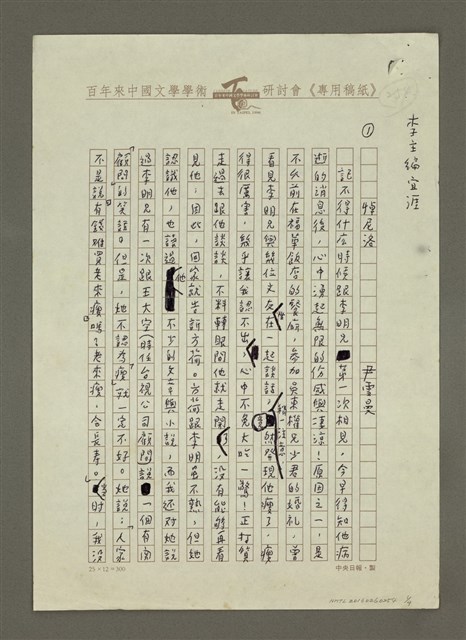 百年來中國文學學術研討會《專用稿紙》
李主編宜涯
①
悼尼洛
尹雪曼
記不得什么時候跟李明兄第一次相見。今早得知他病
逝的消息後,心中湧起無限的伤感與淒涼!原因之一,是
不久前在福華飯店的餐廳,參加吳東權兄少君的婚礼,曾
看見李明兄與幾位文友在一起談話,然發現他瘦了。瘦
得很厲害,幾乎讓我認不出,心中不免大吃一驚!正打算
走過去跟他談談,不料轉眼間他就走開,没有能夠再看
見他;因此,回家就告訴方荷。方荷跟李明虽不熟,但她
認識他,也讀過他不少的文章與小說,而我还对她說
過李明兄有一次跟王大空(時任台視公司顧問)說一個有関
「瘦」的笑話。但是,她不認為「瘦」就一定不好。她說:人家
不是說「有錢难買老來瘦」嗎?老來瘦,合長壽。」當時,我没
25×12=300
中央日報·製